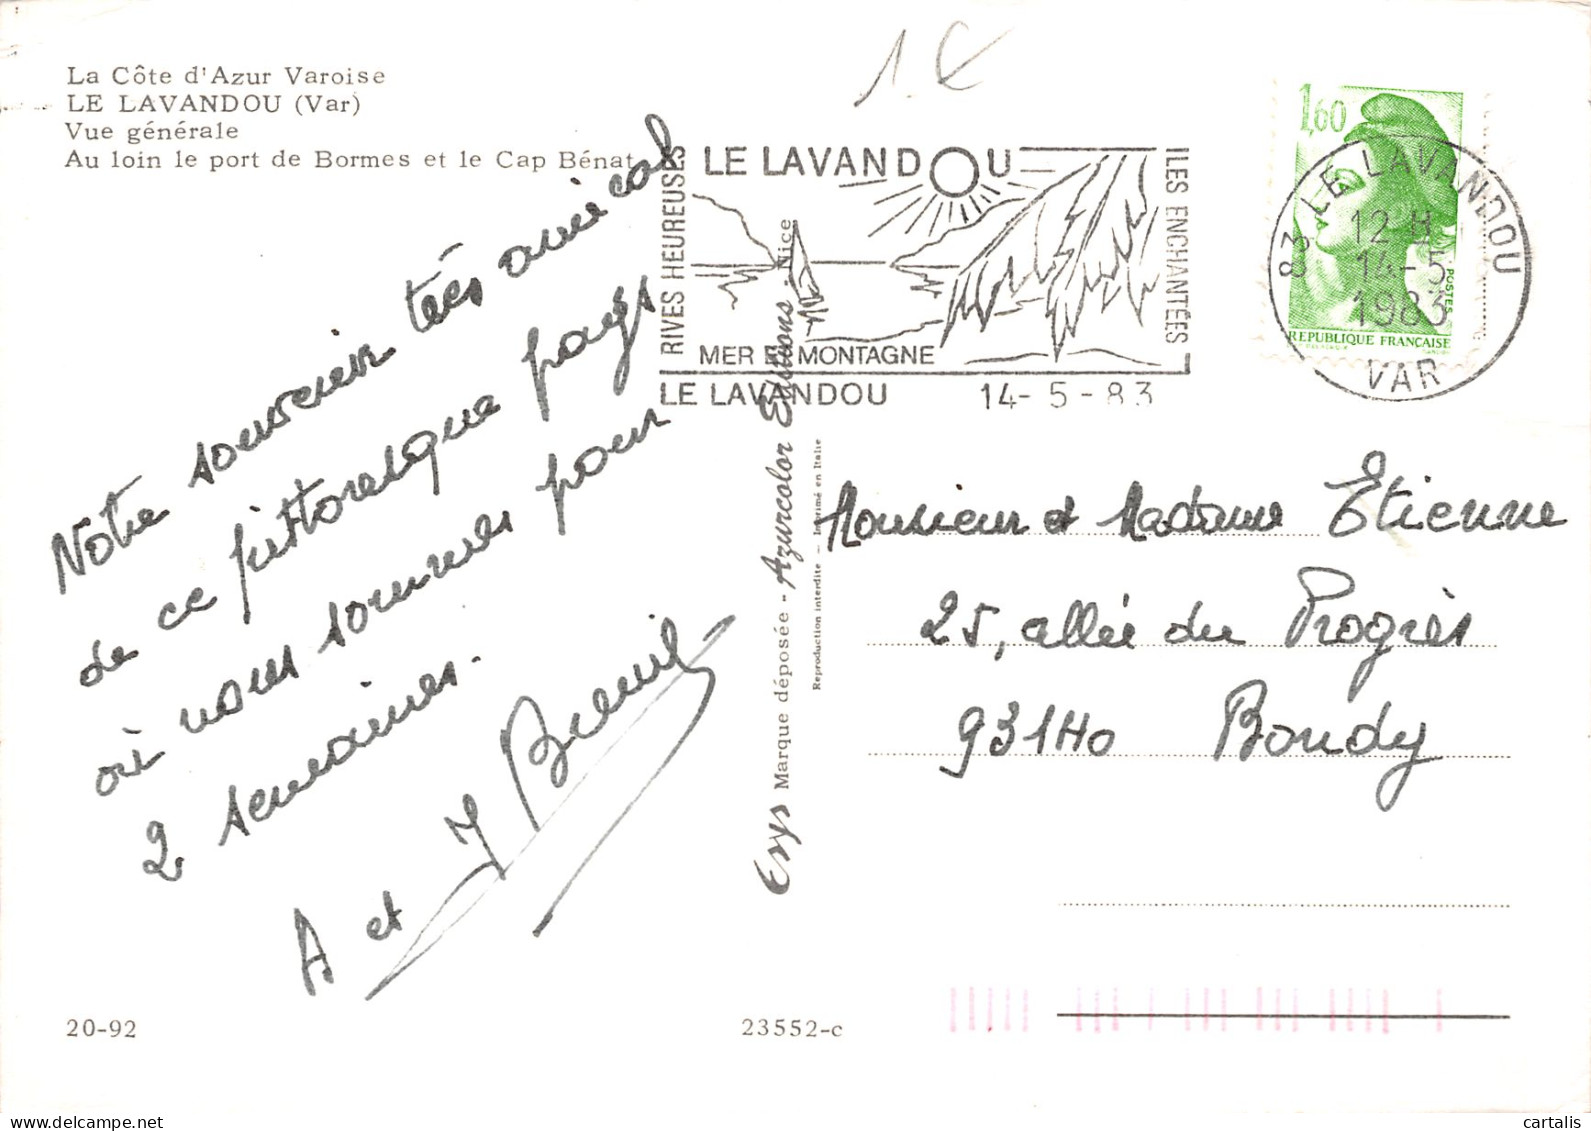 La Côte d'Azur Varoise
LE LAVANDOU (Var)
Vue générale
Au loin le port de Bormes et le Cap Bénat
1.€
RIVES HEUREUSES
LE LAVANDOU
ILES ENCHANTÉES
MER ET MONTAGNE
LE LAVANDOU 14-5-83
1,60
POSTES
REPUBLIQUE FRANÇAISE
83 LE LAVANDOU
12 H
14-5
1983
VAR
Notre souvenir très amical
de ce pittoresque pays
où nous sommes pour
2 semaines.
A et J Breuil
Erys Marque déposée - Azurcolor Editions - Nice
Reproduction interdite — Imprimé en Italie
Monsieur et Madame Etienne
25, allée du Progrès
93140 Bondy
20-92
23552-c
cartalis